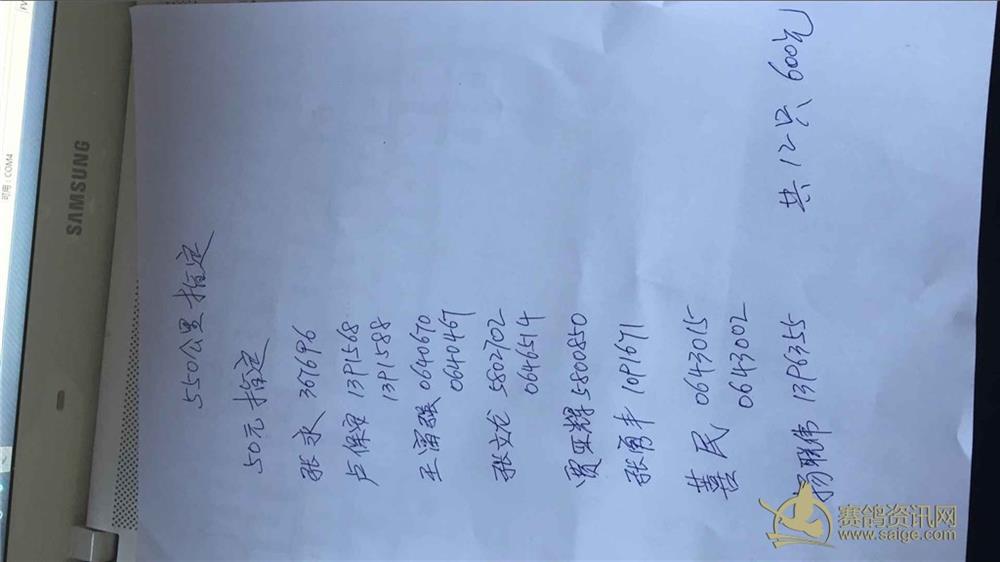 可用:COM4
SAMSUNG
550公里指定
50元指定
张永 367696
卢保安 13P1568
13P1588
王富强 0640670
0640467
张文龙 5802702
0646514
贾亚辉 5800850
张勇丰 10P1671
善民 0643015
0643002
杨联伟 13P6355
共12只 600元
赛鸽资讯网
www.saige.com